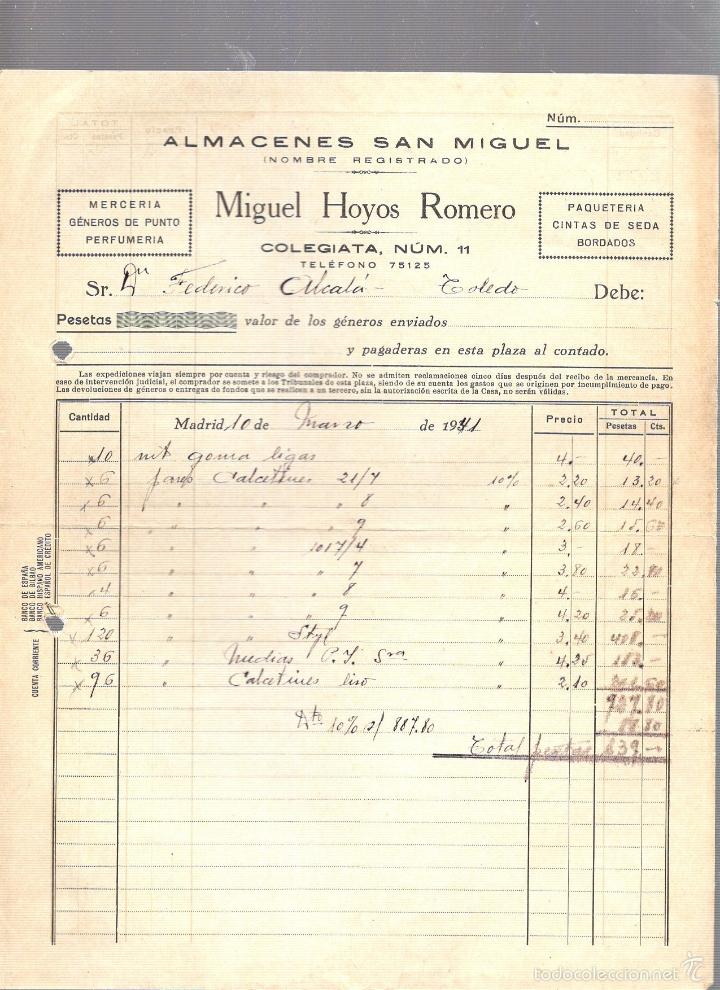 Núm.
ALMACENES SAN MIGUEL
(NOMBRE REGISTRADO)
MERCERIA
GÉNEROS DE PUNTO
PERFUMERIA
Miguel Hoyos Romero
PAQUETERIA
CINTAS DE SEDA
BORDADOS
COLEGIATA, NÚM. 11
TELÉFONO 75125
Sr. Dn Federico Alcalá - Toledo Debe:
Pesetas valor de los géneros enviados
y pagaderas en esta plaza al contado.
Las expediciones viajan siempre por cuenta y riesgo del comprador. No se admiten reclamaciones cinco días después del recibo de la mercancia. En
caso de intervención judicial, el comprador se somete a los Tribunales de esta plaza, siendo de su cuenta los gastos que se originen por incumplimiento de pago.
Las devoluciones de géneros o entregas de fondos que se realicen a un tercero, sin la autorización escrita de la Casa, no serán válidas.
Cantidad Madrid, 10 de Marzo de 1941 Precio TOTAL
Pesetas Cts.
x10 mt goma ligas 4.- 40.-
x6 pares Calcetines 21/7 10% 2.20 13.20
x6 " " " 8 " 2.40 14.40
x6 " " " 9 " 2.60 15.60
x6 " " 1017/4 " 3.- 18.-
x6 " " " 7 " 3.80 22.80
x4 " " " 8 " 4.- 16.-
x6 " " " 9 " 4.20 25.20
x120 " " Styl " 3.40 408.-
x36 " Medias P.Y. Sra " 4.25 153.-
x96 " Calcetines liso " 2.10 201.60
927.80
Dto 10% s/ 887.80 88.80
Total pesetas 839-
CUENTA CORRIENTE
BANCO DE ESPAÑA
BANCO DE BILBAO
BANCO HISPANO AMERICANO
ESPAÑOL DE CRÉDITO
todocoleccion.net